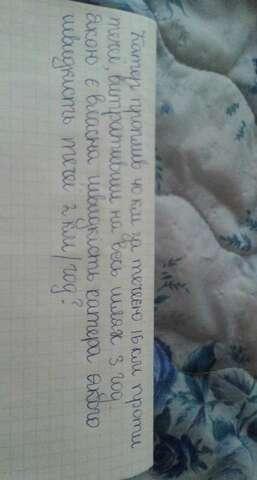 Катер проплив 40 км за течією 16 км проти
течії, витративши на весь шлях 3 год.
Якою є власна швидкість катера якщо
швидкість течії 2 км/год?